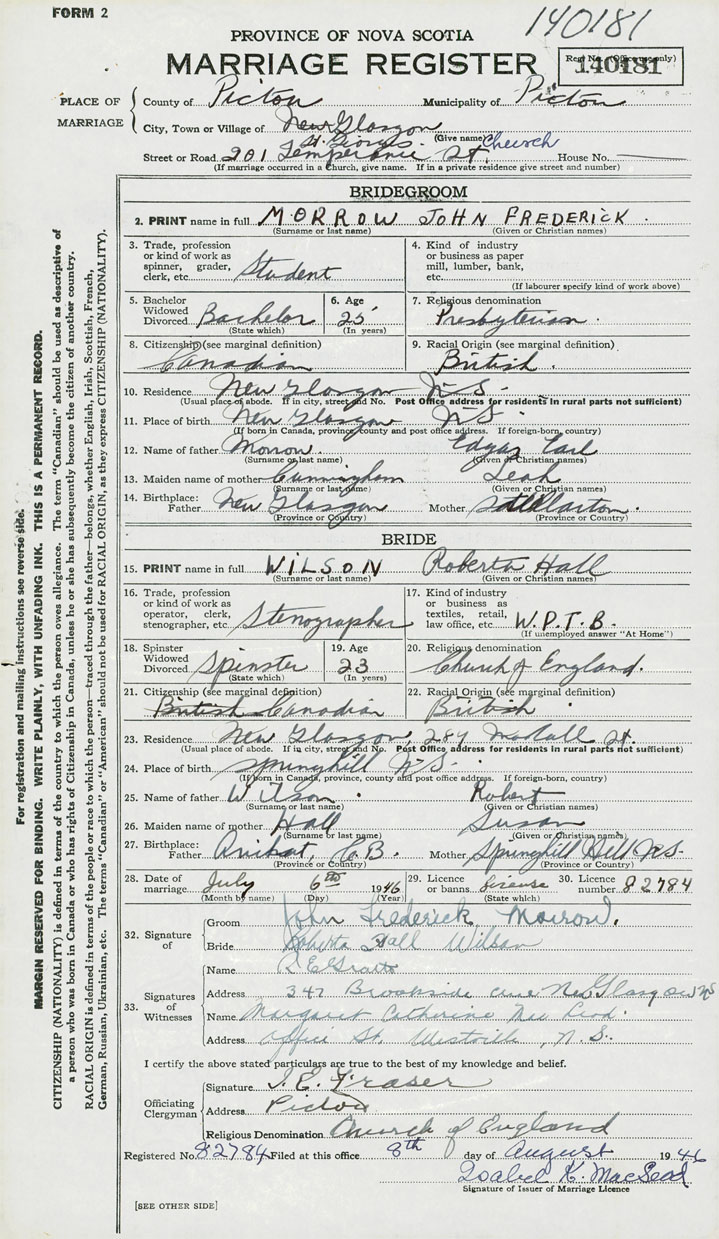 FORM 2
140181
PROVINCE OF NOVA SCOTIA
MARRIAGE REGISTER
Regt No. (Office use only)
140181
PLACE OF MARRIAGE
County of Pictou Municipality of Pictou
City, Town or Village of New Glasgow
St. Georges Church (Give name)
Street or Road 201 Temperance St. House No.
(If marriage occurred in a Church, give name. If in a private residence give street and number)
BRIDEGROOM
2. PRINT name in full MORROW JOHN FREDERICK.
(Surname or last name) (Given or Christian names)
3. Trade, profession or kind of work as spinner, grader, clerk, etc. Student
4. Kind of industry or business as paper mill, lumber, bank, etc.
(If labourer specify kind of work above)
5. Bachelor Widowed Divorced Bachelor (State which)
6. Age 25 (In years)
7. Religious denomination Presbyterian.
8. Citizenship (see marginal definition) Canadian
9. Racial Origin (see marginal definition) British.
10. Residence New Glasgow N-S-
(Usual place of abode. If in city, street and No. Post Office address for residents in rural parts not sufficient)
11. Place of birth New Glasgow N-S-
(If born in Canada, province, county and post office address. If foreign-born, country)
12. Name of father Morrow. Edgar Earl
(Surname or last name) (Given or Christian names)
13. Maiden name of mother Cunningham Leah
(Surname or last name) (Given or Christian names)
14. Birthplace: Father New Glasgow Mother Stellarton.
(Province or Country) (Province or Country)
BRIDE
15. PRINT name in full WILSON Roberta Hall
(Surname or last name) (Given or Christian names)
16. Trade, profession or kind of work as operator, clerk, stenographer, etc. Stenographer
17. Kind of industry or business as textiles, retail, law office, etc. W.P.T.B.
(If unemployed answer "At Home")
18. Spinster Widowed Divorced Spinster (State which)
19. Age 23 (In years)
20. Religious denomination Church of England.
21. Citizenship (see marginal definition) British Canadian
22. Racial Origin (see marginal definition) British.
23. Residence New Glasgow, St.
(Usual place of abode. If in city, street and No. Post Office address for residents in rural parts not sufficient)
24. Place of birth Springhill N-S-
(If born in Canada, province, county and post office address. If foreign-born, country)
25. Name of father Wilson. Robert
(Surname or last name) (Given or Christian names)
26. Maiden name of mother Hall Susan
(Surname or last name) (Given or Christian names)
27. Birthplace: Father C.B. Mother Springhill N.S.
(Province or Country) (Province or Country)
28. Date of marriage July 6th 1946
(Month by name) (Day) (Year)
29. Licence or banns. license (State which)
30. Licence number 82784
32. Signature of
Groom John Frederick Morrow.
Bride Roberta Hall Wilson
33. Signatures of Witnesses
Name
Address 347 Brookside New Glasgow NS
Name Margaret Catherine Mac Leod.
Address Office St. Westville, N.S.
I certify the above stated particulars are true to the best of my knowledge and belief.
Officiating Clergyman
Signature Fraser
Address Pictou
Religious Denomination Church of England
Registered No. 82784 Filed at this office 8th day of August 1946
Isabel K. MacLeod
Signature of Issuer of Marriage Licence
[SEE OTHER SIDE]
For registration and mailing instructions see reverse side.
MARGIN RESERVED FOR BINDING. WRITE PLAINLY, WITH UNFADING INK. THIS IS A PERMANENT RECORD.
CITIZENSHIP (NATIONALITY) is defined in terms of the country to which the person owes allegiance. The term "Canadian" should be used as descriptive of
a person who was born in Canada or who has rights of Citizenship in Canada, unless he or she has subsequently become the citizen of another country.
RACIAL ORIGIN is defined in terms of the people or race to which the person—traced through the father—belongs, whether English, Irish, Scottish, French,
German, Russian, Ukrainian, etc. The terms "Canadian" or "American" should not be used for RACIAL ORIGIN, as they express CITIZENSHIP (NATIONALITY).